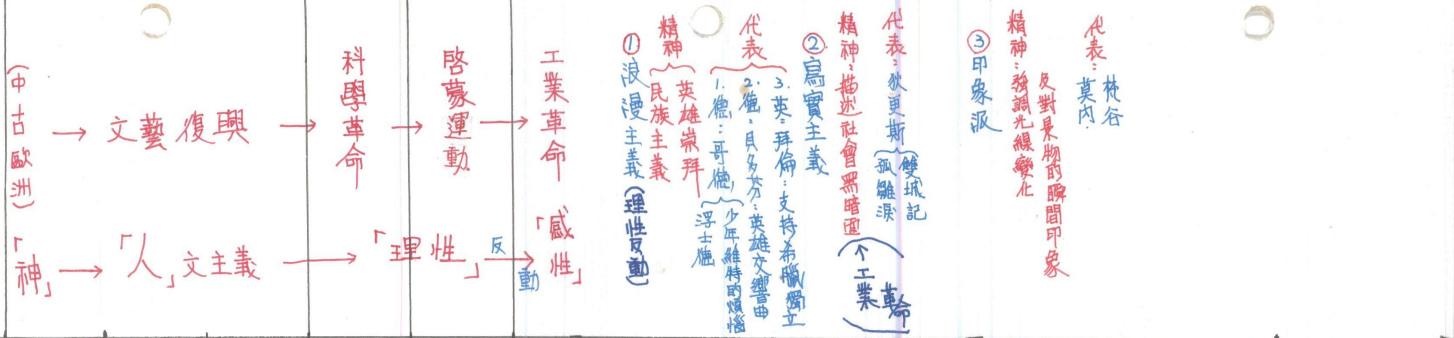 (中古歐洲) → 文藝復興 → 科學革命 → 啓蒙運動 → 工業革命
「神」 → 「人」文主義 → 「理性」 反動 → 「感性」
① 浪漫主義 (理性反動)
精神
民族主義
英雄崇拜
代表
1. 德：哥德
浮士德
少年維特的煩惱
2. 德：貝多芬：英雄交響曲
3. 英：拜倫：支持希臘獨立
② 寫實主義
精神：描述社會黑暗面
(↑工業革命)
代表：狄更斯
孤雛淚
雙城記
③ 印象派
精神：強調光線變化
反對景物的瞬間印象
代表：
莫內.
梵谷